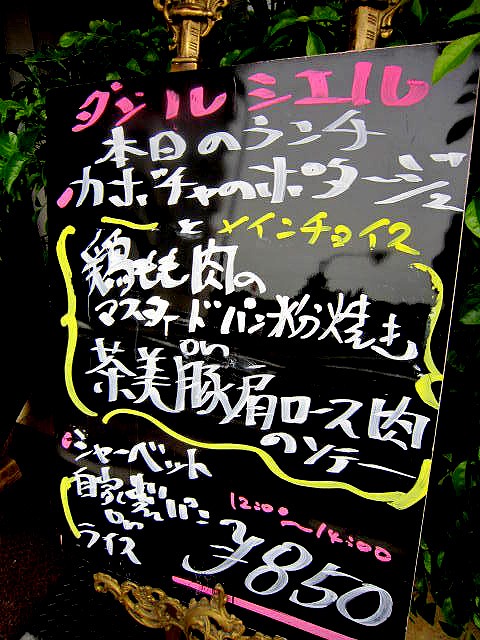 ダン ル シエル
本日のランチ
カボチャのポタージュ
と メインチョイス
鶏もも肉の
マスタードパン粉焼き
on
茶美豚肩ロース肉
のソテー
シャーベット
自家製パン
on
ライス
12:00〜14:00
¥850